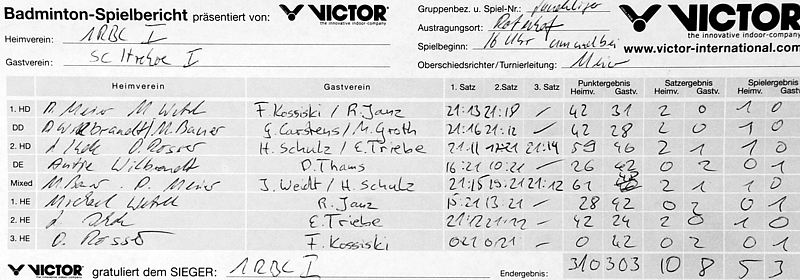 Badminton-Spielbericht präsentiert von: VICTOR
the innovative indoor-company
Gruppenbez. u. Spiel-Nr.:
Austragungsort:
Spielbeginn: 16 Uhr
Oberschiedsrichter/Turnierleitung: Meier
VICTOR
the innovative indoor-company
www.victor-international.com
Heimverein: 1RBC I
Gastverein: SC Itzehoe I
Heimverein Gastverein 1. Satz 2. Satz 3. Satz Punktergebn. Heimv. Gastv. Satzergebn. Heimv. Gastv. Spielergebn. Heimv. Gastv.
1. HD D. Meier M. F. Kossiski / R. Janz 21:13 21:18 / 42 31 2 0 1 0
DD M. Bauer G. Carstens / M. Groth 21:16 21:12 / 42 28 2 0 1 0
2. HD H. Schulz / E. Triebe 21:11 17:21 21:14 59 46 2 1 1 0
DE Antje Wilbrandt D. Thams 16:21 10:21 / 26 42 0 2 0 1
Mixed D. Meier J. Weidt / H. Schulz 21:15 19:21 21:12 61 2 1 1 0
1. HE Michael R. Janz 15:21 13:21 / 28 42 0 2 0 1
2. HE E. Triebe 21:12 21:12 / 42 24 2 0 1 0
3. HE F. Kossiski 0:21 0:21 / 0 42 0 2 0 1
VICTOR gratuliert dem SIEGER: 1RBC I Endergebnis: 310 303 10 8 5 3
the innovative indoor-company